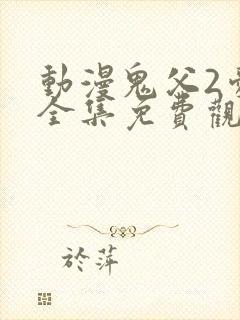 動漫鬼父2
全集免費觀
於萍